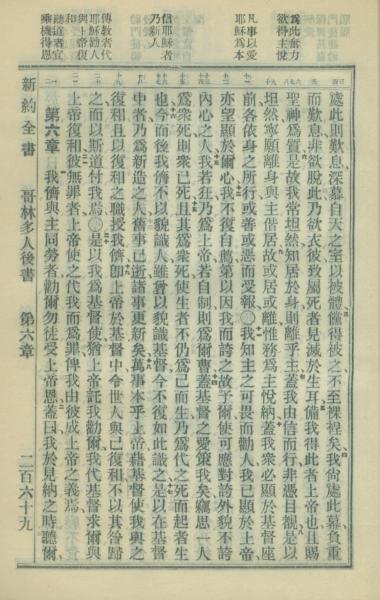 爲此奮力
欲得主悅
凡事以愛
耶穌爲本
信耶穌者
乃新人
傳教者代
耶穌勸人
與上帝復
和
聽道者宜
乘機得恩
處此則歎息深慕自天之室以被體儻得被之不至裸裎矣我尙處此幕負重
而歎息非欲脫此乃欲衣彼致屬死者見滅於生耳備我得此者上帝也且賜
聖神爲質是故我常坦然知居於身則離乎主蓋我由信而行非憑目覩是以
坦然寧願離身與主偕居故或居或離惟務爲主悅納蓋我衆必顯於基督座
前各依身之所行或善或惡而受報〇我知主之可畏而勸人我已顯於上帝
亦望顯於爾心我不復自薦第以因我而誇之故予爾使可應對誇外貌不誇
內心之人我若狂乃爲上帝若自制則爲爾曹蓋基督之愛策我矣竊思一人
爲衆死則衆已死且其爲衆死使生者不仍爲己而生乃爲代之死而起者生
也今而後我儕不以貌識人雖曾以貌識基督今不復如此識之是以在基督
中者乃爲新造之人舊事已逝諸事更新矣萬事本乎上帝藉基督使我與之
復和且以復和之職授我儕卽上帝於基督中令世人與己復和不以其咎歸
之而以斯道付我焉〇是以我爲基督使猶上帝託我勸爾我代基督求爾與
上帝復和彼無罪者上帝使之代我而爲罪俾我由彼成上帝之義焉
第六章 我儕與主同勞者勸爾勿徒受上帝恩蓋曰我於見納之時聽爾
新約全書 哥林多人後書 第六章 二百六十九